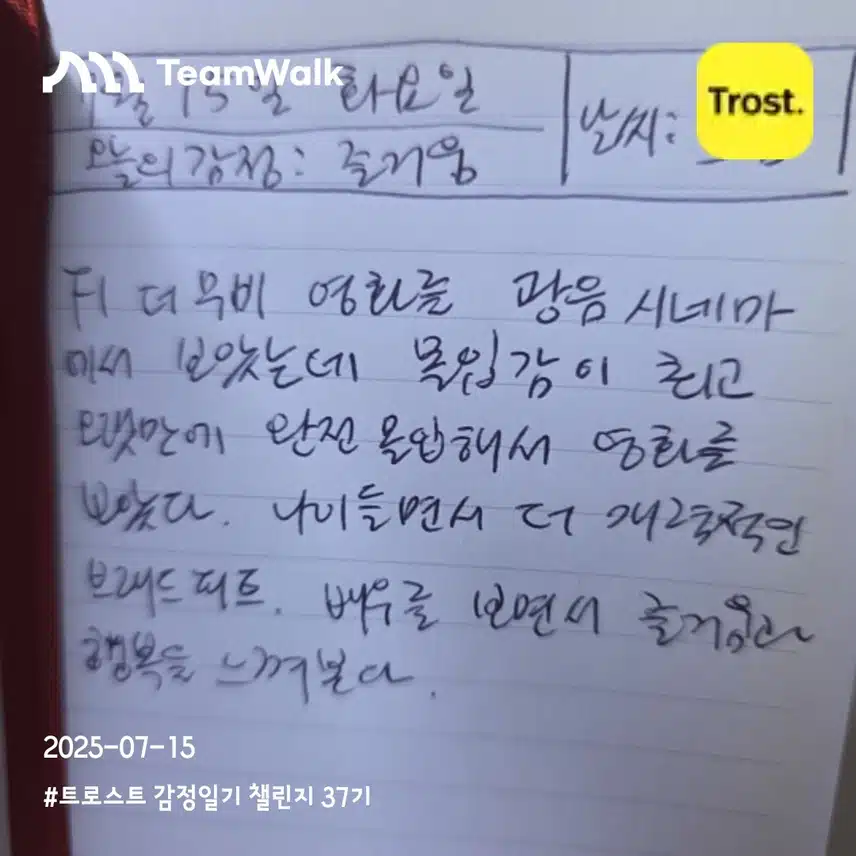 TeamWalk
7월 15일 화요일
날씨:
Trost.
오늘의 감정: 즐거움
F1 더 무비 영화를 광음시네마
에서 보았는데 몰입감이 최고
오랫만에 완전 몰입해서 영화를
보았다. 나이들면서 더 매력적인
브래드피트. 배우를 보면서 즐거움과
행복을 느껴본다.
2025-07-15
#트로스트 감정일기 챌린지 37기